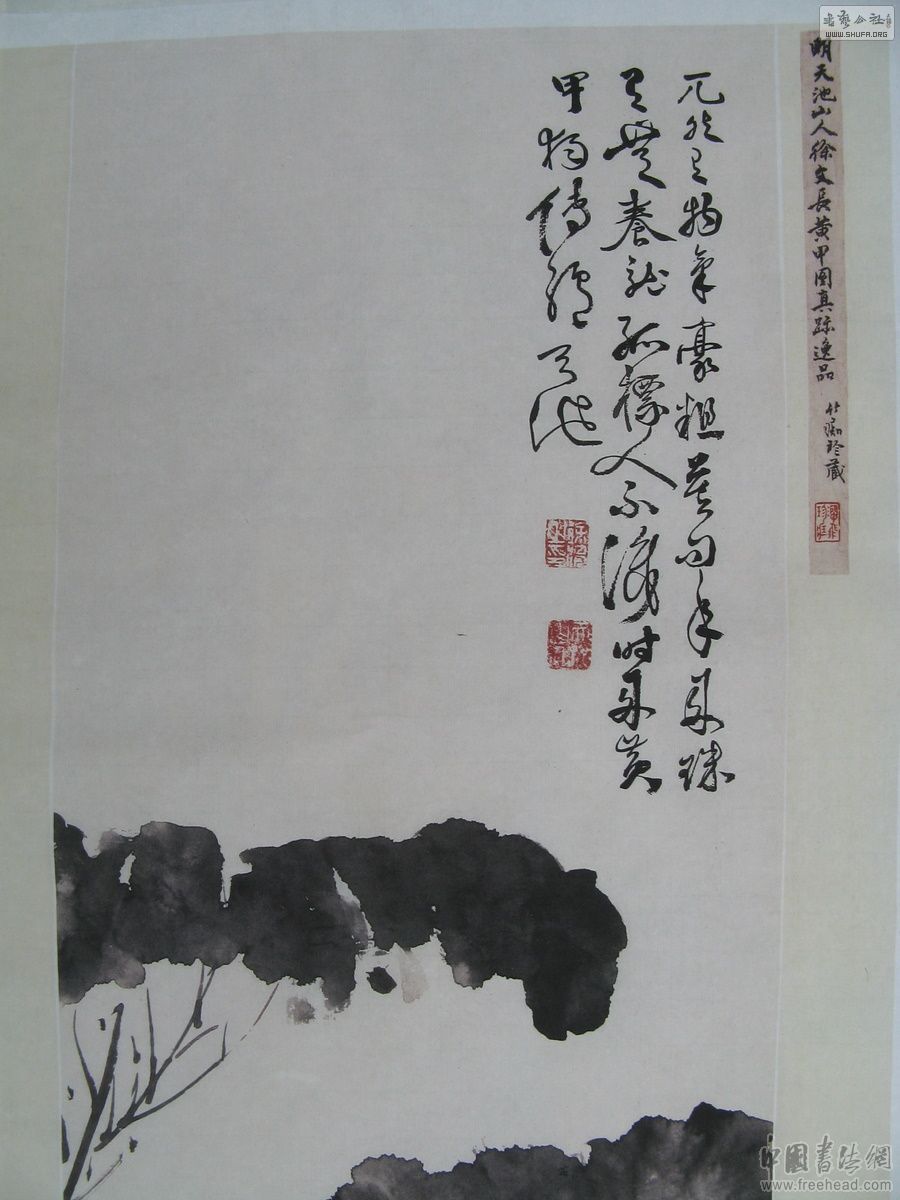 書藝公社
WWW.SHUFA.ORG
明天池山人徐文長黄甲圖真跡逸品
竹癡珍藏
兀然有物氣豪粗莫問年來珠
有無養就孤標人不識時來黄
甲獨傳臚 天池
中國書法網
www.freehead.com